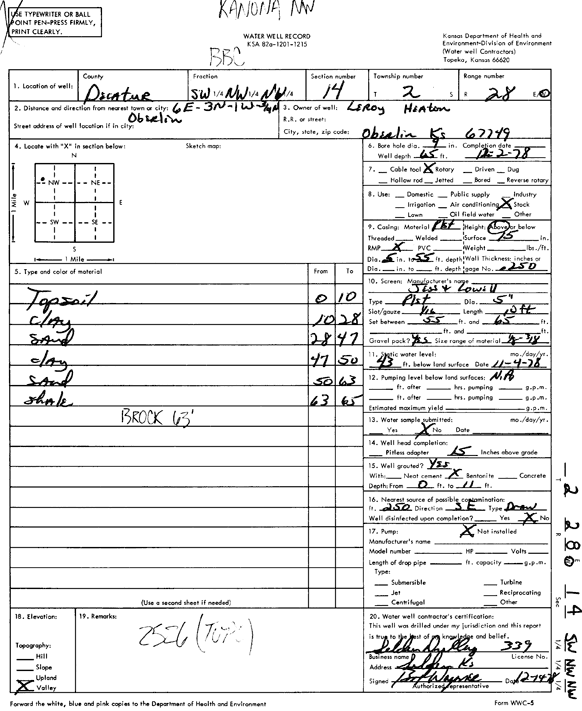 KANONA, NW
USE TYPEWRITER OR BALL
POINT PEN-PRESS FIRMLY,
PRINT CLEARLY.
WATER WELL RECORD
KSA 82a-1201-1215
Kansas Department of Health and
Environment-Division of Environment
(Water well Contractors)
Topeka, Kansas 66620
BBC
1. Location of well: County Decatur Fraction SW 1/4 NW 1/4 NW 1/4 Section number 14 Township number T 2 S Range number R 28 E/W
2. Distance and direction from nearest town or city: 6E-3N-1W-3/4N Oberlin
Street address of well location if in city:
3. Owner of well: LeRoy Heaton
R.R. or street:
City, state, zip code: Oberlin Ks 67749
4. Locate with "X" in section below: Sketch map:
N
NW NE
W E
SW SE
S
1 Mile
1 Mile
6. Bore hole dia. 9 in. Completion date
Well depth 65 ft. 12-2-78
7. Cable tool X Rotary Driven Dug
Hollow rod Jetted Bored Reverse rotary
8. Use: Domestic Public supply Industry
Irrigation Air conditioning X Stock
Lawn Oil field water Other
9. Casing: Material Plst Height: Above or below
Threaded Welded Surface 15 in.
RMP X PVC Weight lbs./ft.
Dia. 5 in. to 55 ft. depth Wall Thickness: inches or
Dia. in. to ft. depth gage No. .250
5. Type and color of material From To
Topsoil 0 10
Clay 10 28
Sand 28 47
Clay 47 50
Sand 50 63
Shale 63 65
BROCK 63'
(Use a second sheet if needed)
10. Screen: Manufacturer's name
Type Plst Dia. 5"
Slot/gauze 1/16 Length 10ft
Set between 55 ft. and 65 ft.
ft. and ft.
Gravel pack? Yes Size range of material 1/8-3/8
11. Static water level: mo./day/yr.
43 ft. below land surface Date 11-4-78
12. Pumping level below land surfaces: N/A
ft. after hrs. pumping g.p.m.
ft. after hrs. pumping g.p.m.
Estimated maximum yield g.p.m.
13. Water sample submitted: mo./day/yr.
Yes X No Date
14. Well head completion:
Pitless adapter 15 Inches above grade
15. Well grouted? Yes
With: Neat cement X Bentonite Concrete
Depth: From 0 ft. to 11 ft.
16. Nearest source of possible contamination:
ft. 250 Direction SE Type Draw
Well disinfected upon completion? Yes X No
17. Pump: X Not installed
Manufacturer's name
Model number HP Volts
Length of drop pipe ft. capacity g.p.m.
Type:
Submersible Turbine
Jet Reciprocating
Centrifugal Other
18. Elevation:
Topography:
Hill
Slope
Upland
X Valley
19. Remarks:
2526 (TOPO)
20. Water well contractor's certification:
This well was drilled under my jurisdiction and this report
is true to the best of my knowledge and belief.
Selden Drilling 339
Business name License No.
Address Selden Ks
Signed Date 12-14-78
Authorized representative
T 2 R 28 E W Sec 14 1/4 SW 1/4 NW 1/4 NW
Forward the white, blue and pink copies to the Department of Health and Environment
Form WWC-5